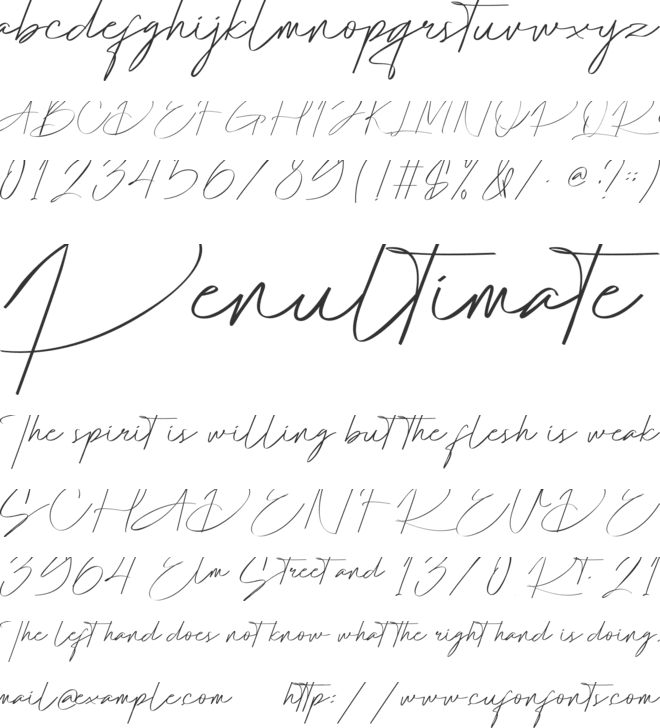 abcdefghijklmnopqrstuvwxyz
ABCDEFGHIJKLMNOPQR
0123456/89(!#$%&/.@?:)
Penultimate
The spirit is willing but the flesh is weak
SCHADENFREUDE
3964 Elm Street and 1370 Rt. 21
The left hand does not know what the right hand is doing.
mail@example.com http://www.cufonfonts.com